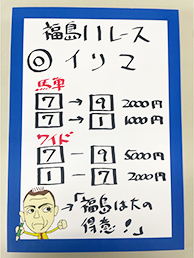 福島11レース
◎イリマ
馬単
7→9 2000円
7→1 1000円
ワイド
7-9 5000円
1-7 2000円
→「福島は大の
得意!」